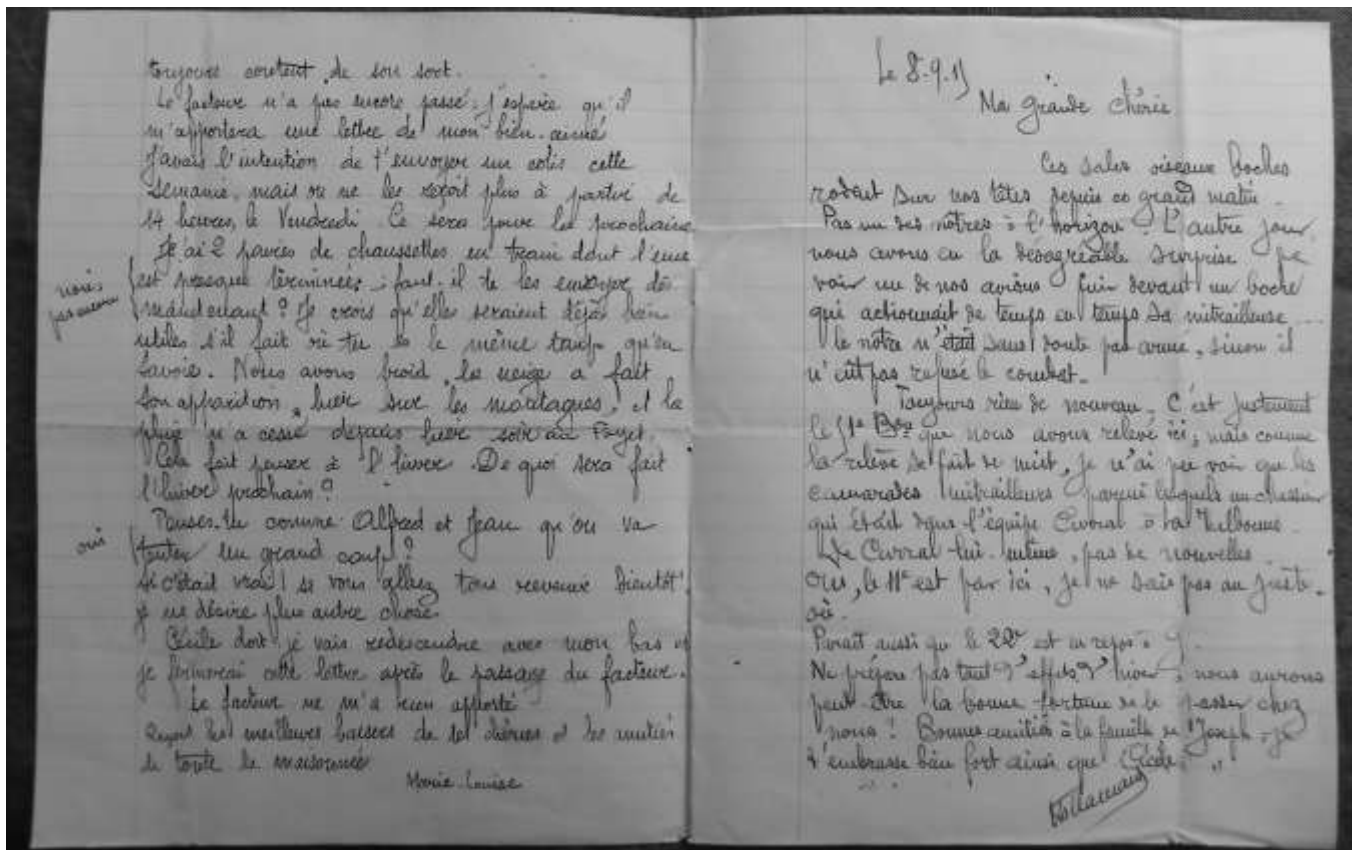 toujours content de son sort.
Le facteur n'a pas encore passé, j'espère qu'il
m'apportera une lettre de mon bien-aimé
J'avais l'intention de t'envoyer un colis cette
semaine, mais on ne les reçoit plus à partir de
14 heures, le Vendredi. Ce sera pour la prochaine
J'ai 2 paires de chaussettes en train dont l'une
est presque terminée ; faut-il te les envoyer dès
non pas encore
maintenant ? Je crois qu'elles seraient déjà bien
utiles s'il fait où tu es le même temps qu'en
Savoie. Nous avons froid, la neige a fait
son apparition, hier sur les montagnes, et la
pluie n'a cessé depuis hier soir au
Cela fait penser à l'hiver. De quoi sera fait
l'hiver prochain ?
Penses-tu comme Alfred et Jean qu'on va
oui
tenter un grand coup ?
Si c'était vrai ! si vous alliez tous revenir bientôt !
je ne désire plus autre chose.
Cécile dort je vais redescendre avec mon bas et
je terminerai cette lettre après le passage du facteur.
Le facteur ne m'a rien apporté
Reçois les meilleurs baisers de tes chéries et les amitiés
de toute la maisonnée
Marie-Louise
Le 8-9-15
Ma grande chérie
Ces sales oiseaux boches
rodent sur nos têtes depuis ce grand matin.
Pas un des nôtres à l'horizon. L'autre jour,
nous avons eu la désagréable surprise de
voir un de nos avions fuir devant un boche
qui actionnait de temps en temps sa mitrailleuse
le nôtre n'était sans doute pas armé, sinon il
n'eût pas refusé le combat.
Toujours rien de nouveau. C'est justement
le 51e Bon que nous avons relevé ici, mais comme
la relève se fait de nuit, je n'ai pu voir que les
camarades mitrailleurs parmi lesquels un chasseur
qui était dans l'équipe Curral à la
De Curral lui-même, pas de nouvelles
Oui, le 11e est par ici, je ne sais pas au juste
où.
Parait aussi que le 22e est en repos à G.
Ne prépare pas tant d'effets d'hiver, nous aurons
peut-être la bonne fortune de le passer chez
nous ! Bonnes amitiés à la famille de Joseph - je
t'embrasse bien fort ainsi que Cécile